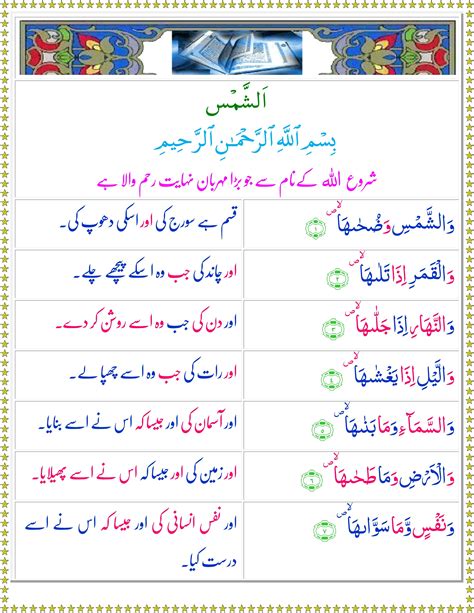 اَلشَّمْس
بِسْمِ ٱللَّهِ ٱلرَّحْمَـٰنِ ٱلرَّحِيمِ
شروع اللہ کے نام سے جو بڑا مہربان نہایت رحم والا ہے
وَالشَّمْسِ وَضُحٰىهَا ۙ ص ١
قسم ہے سورج کی اور اسکی دھوپ کی۔
وَالْقَمَرِ اِذَا تَلٰىهَا ۙ ص ٢
اور چاند کی جب وہ اسکے پیچھے چلے۔
وَالنَّهَارِ اِذَا جَلّٰىهَا ۙ ص ٣
اور دن کی جب وہ اسے روشن کر دے۔
وَالَّيْلِ اِذَا يَغْشٰىهَا ۙ ص ٤
اور رات کی جب وہ اسے چھپا لے۔
وَالسَّمَآءِ وَمَا بَنٰىهَا ۙ ص ٥
اور آسمان کی اور جیسا کہ اس نے اسے بنایا۔
وَالْاَرْضِ وَمَا طَحٰىهَا ۙ ص ٦
اور زمین کی اور جیسا کہ اس نے اسے پھیلایا۔
وَنَفْسٍ وَّمَا سَوّٰىهَا ۙ ص ٧
اور نفس انسانی کی اور جیسا کہ اس نے اسے
درست کیا۔